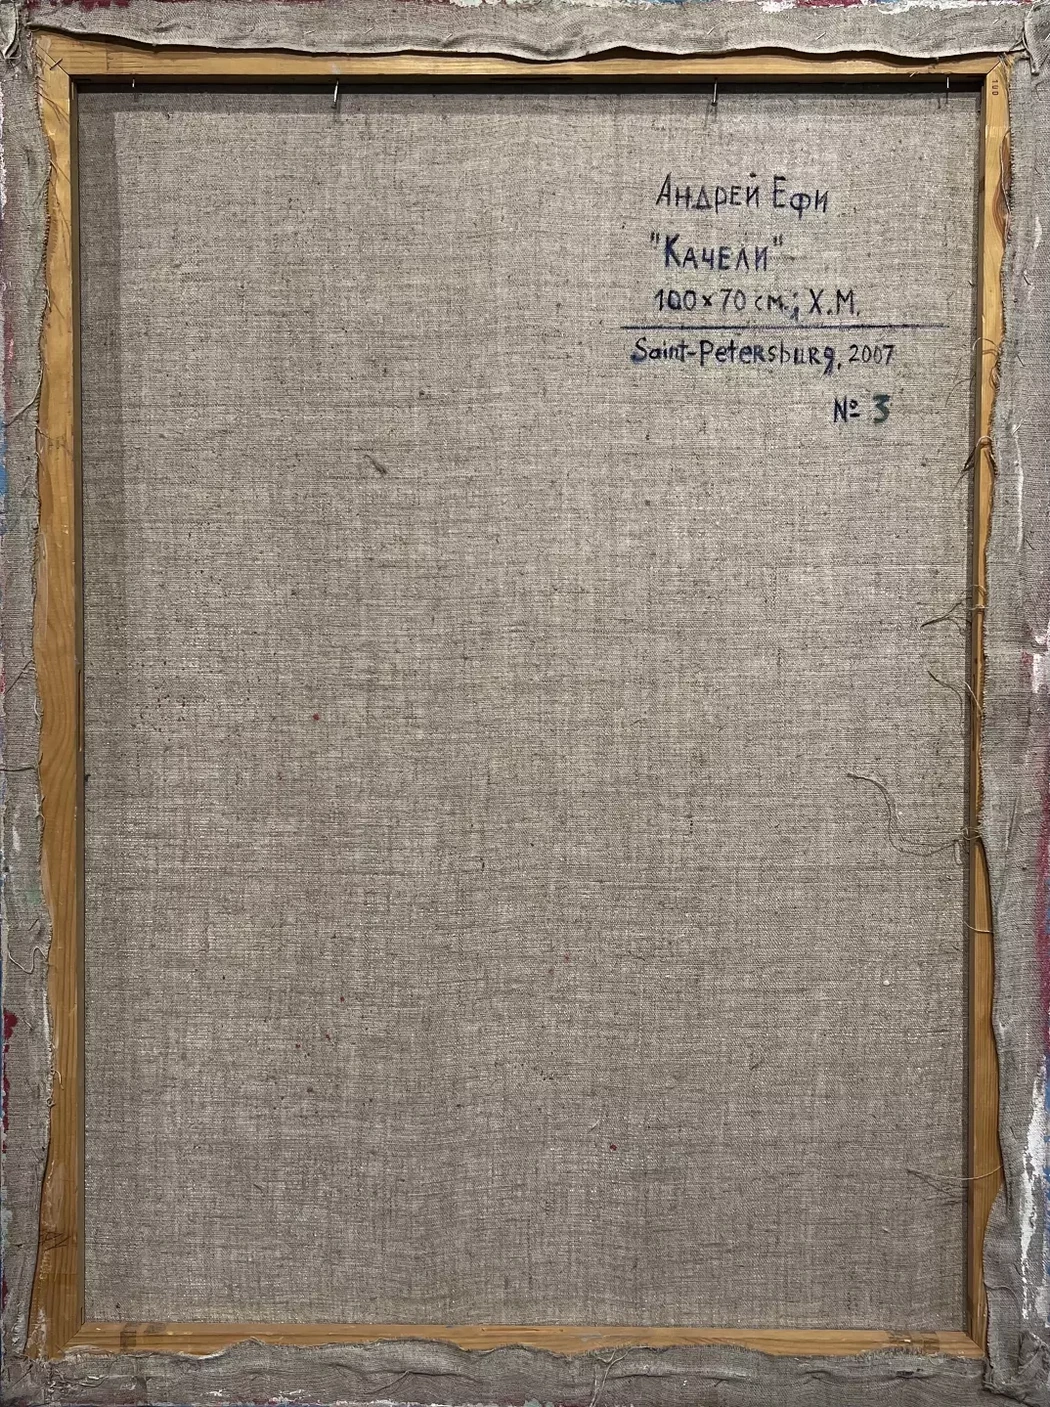 Андрей Ефи
"Качели"
100×70 см.; Х.М.
Saint-Petersburg, 2007
№ 3
100